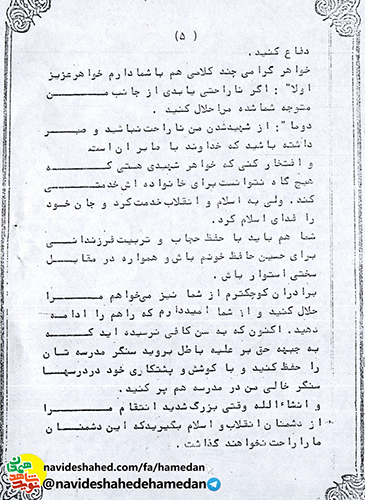 ( ۵ )
دفاع کنید .
خواهر گرامی چند کلامی هم با شما دارم خواهر عزیز
اولا" : اگر ناراحتی یا بدی از جانب من
متوجه شما شده مرا حلال کنید .
دوما": از شهید شدن من ناراحت نباشید و صبر
داشته باشید که خداوند با صابران است
و افتخار کنی که خواهر شهیدی هستی که
هیچ گاه نتوانست برای خانواده اش خدمتی
کند. ولی به اسلام و انقلاب خدمت کرد و جان خود
را فدای اسلام کرد.
شما هم باید با حفظ حجاب و تربیت فرزندانی
برای حسین حافظ خونم باش و همواره در مقابل
سختی استوار باش .
برادران کوچکترم از شما نیز می‌خواهم مرا
حلال کنید و از شما امیددارم که راهم را ادامه
دهید. اکنون که به سن کافی نرسیده اید که
به جبهه حق بر علیه باطل بروید سنگر مدرسه تان
را حفظ کنید و با کوشش و پشتکاری خود در درسها
سنگر خالی من در مدرسه هم پر کنید .
و انشاءالله وقتی بزرگ شدید انتقام مرا
از دشمنان انقلاب و اسلام بگیرید که این دشمنان
ما را راحت نخواهند گذاشت .
navideshahed.com/fa/hamedan
@navideshahedehamedan